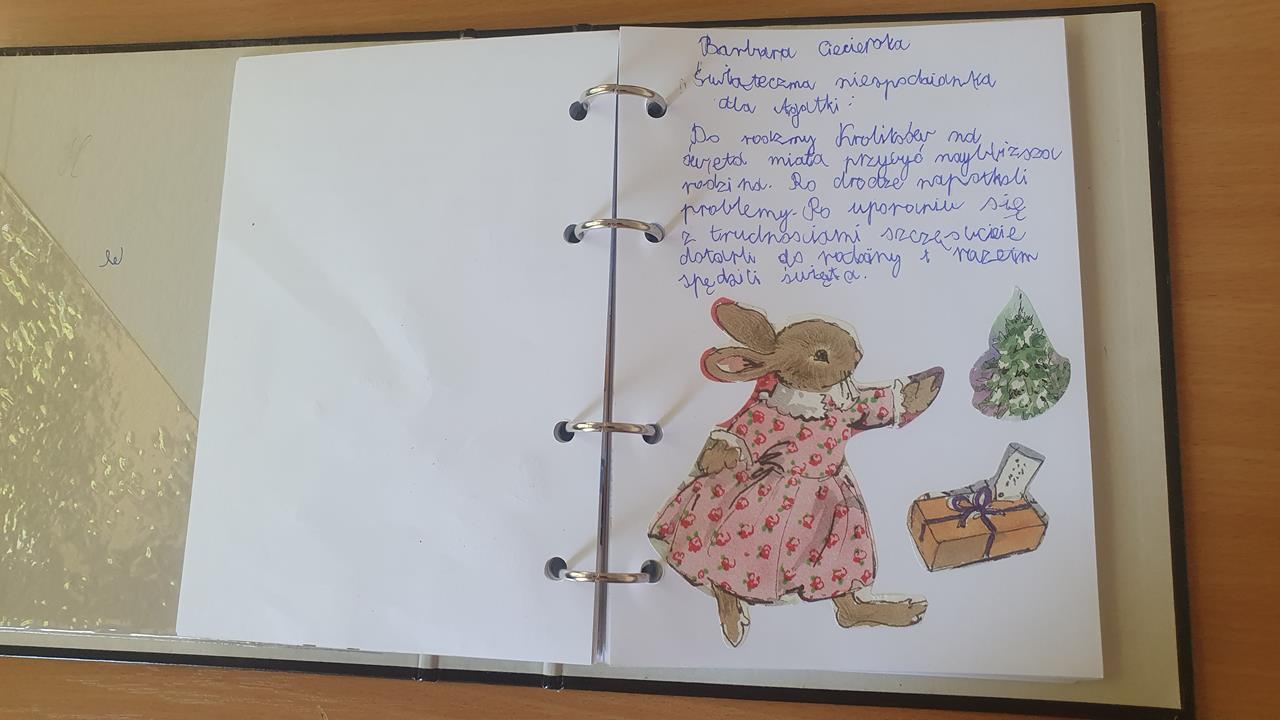 Barbara Ciecierska
Świąteczna niespodzianka
dla Agatki:
Do rodziny Królików na
święta miała przybyć najbliższa
rodzina. Po drodze napotkali
problemy. Po uporaniu się
z trudnościami szczęśliwie
dotarli do rodziny i razem
spędzili święta.